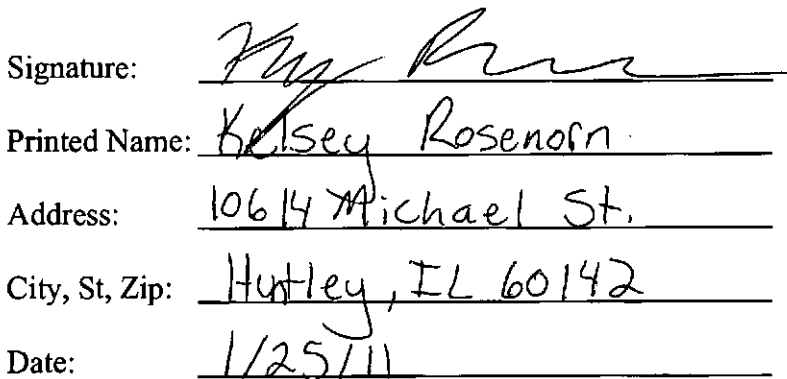 Signature:
Printed Name: Kelsey Rosenorn
Address: 10614 Michael St.
City, St, Zip: Huntley, IL 60142
Date: 1/25/11